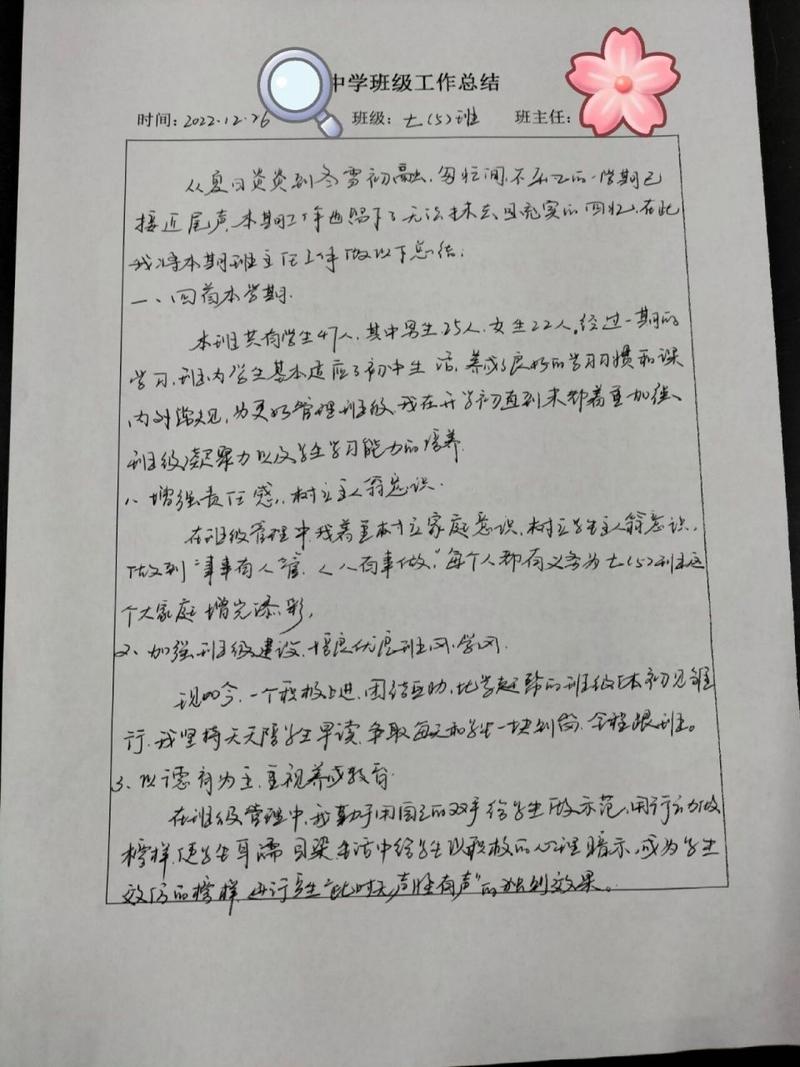 中学班级工作总结
时间：2022.12.26 班级：七(5)班 班主任：
从夏日炎炎到冬雪初融，匆忙间，不平凡的一学期已
接近尾声，本期工作也留下了无法抹去且充实的回忆，在此
我将本期班主任工作做以下总结：
一、回首本学期.
本班共有学生47人，其中男生25人，女生22人。经过一期的
学习，班内学生基本适应了初中生活，养成了良好的学习习惯和课
内外常规，为更好管理班级，我在开学初直到末都着重加强、
班级凝聚力以及学生学习能力的培养.
1、增强责任感，树立主人翁意识.
在班级管理中，我着重树立家庭意识，树立学生主人翁意识，
做到“事事有人管，人人有事做。”每个人都有义务为七(5)班这
个大家庭增光添彩，
2、加强班级建设，优良班风、学风.
现如今，一个积极上进，团结互助，比学赶帮的班级已初见雏
行，我坚持天天陪学生早读，争取每天和学生一块到岗，全程跟班。
3、以德育为主，重视养成教育.
在班级管理中，我勤于用自己的双手给学生做示范，用行动做
榜样，使学生耳濡目染，生活中给学生以积极的心理暗示，成为学生
效仿的榜样，进行产生“此时无声胜有声”的独到效果。